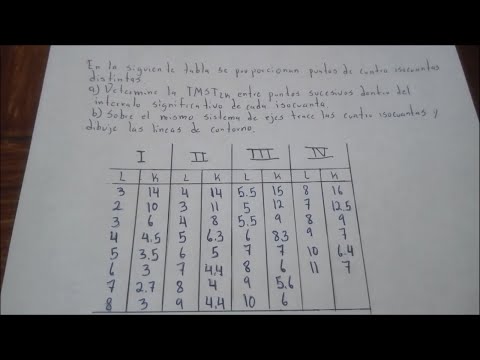 En la siguiente tabla se proporcionan puntos de cuatro isocuantas
distintas.
a) Determine la TMST LK entre puntos sucesivos dentro del
intervalo significativo de cada isocuanta.
b) Sobre el mismo sistema de ejes trace las cuatro isocuantas y
dibuje las lineas de contorno.
I II III IV
L K L K L K L K
3 14 4 14 5.5 15 8 16
2 10 3 11 5 12 7 12.5
3 6 4 8 5.5 9 8 9
4 4.5 5 6.3 6 8.3 9 7
5 3.5 6 5 7 7 10 6.4
6 3 7 4.4 8 6 11 7
7 2.7 8 4 9 5.6
8 3 9 4.4 10 6